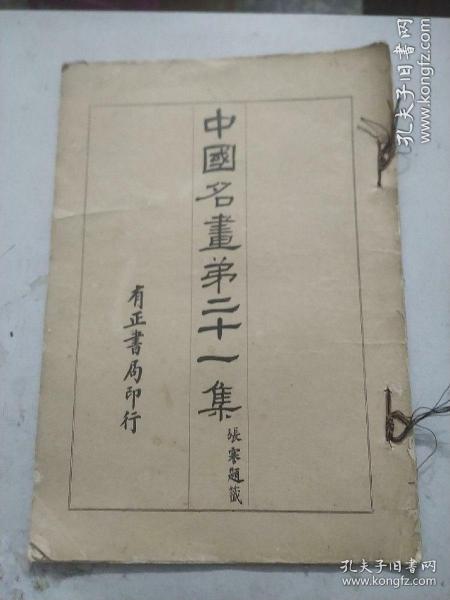 中國名畫第二十一集
張寒題籤
有正書局印行
孔夫子旧书网
www.kongfz.com
孔夫子旧书网
www.kongfz.com